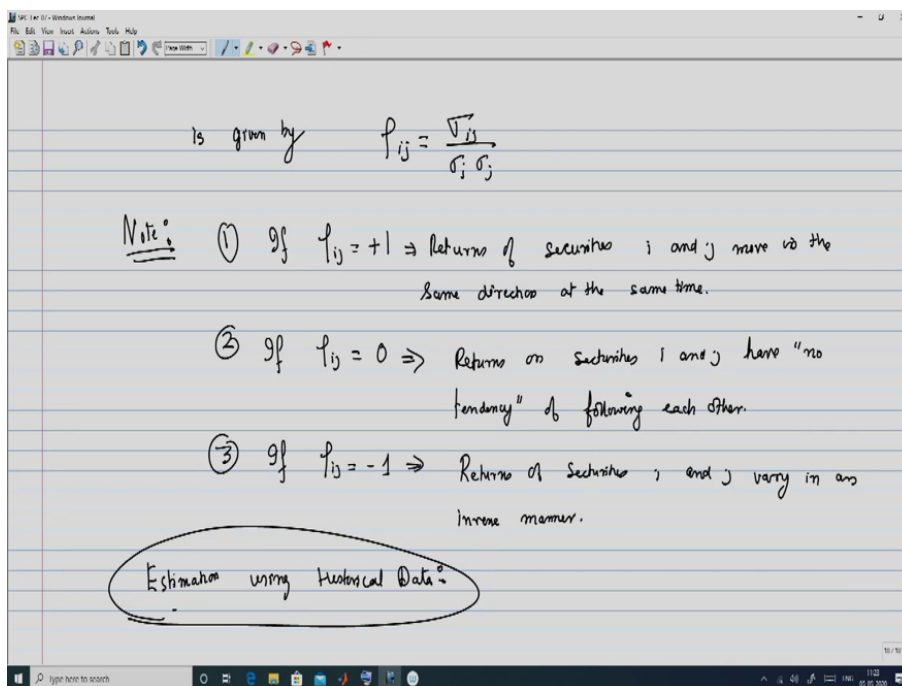 SPC Lec 07 - Windows Journal
File Edit View Insert Actions Tools Help
Page Width
is given by ρij = σij / σi σj
Note: ① If ρij = +1 ⇒ Returns of securities i and j move in the
same direction at the same time.
② If ρij = 0 ⇒ Returns on securities i and j have "no
tendency" of following each other.
③ If ρij = -1 ⇒ Returns of securities i and j vary in an
inverse manner.
Estimation using Historical Data:
10 / 10
Type here to search
ENG
11:23
05-05-2020